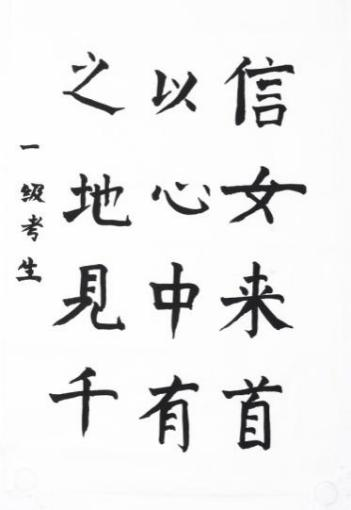 信女来首
以心中有
之地見千
一级考生